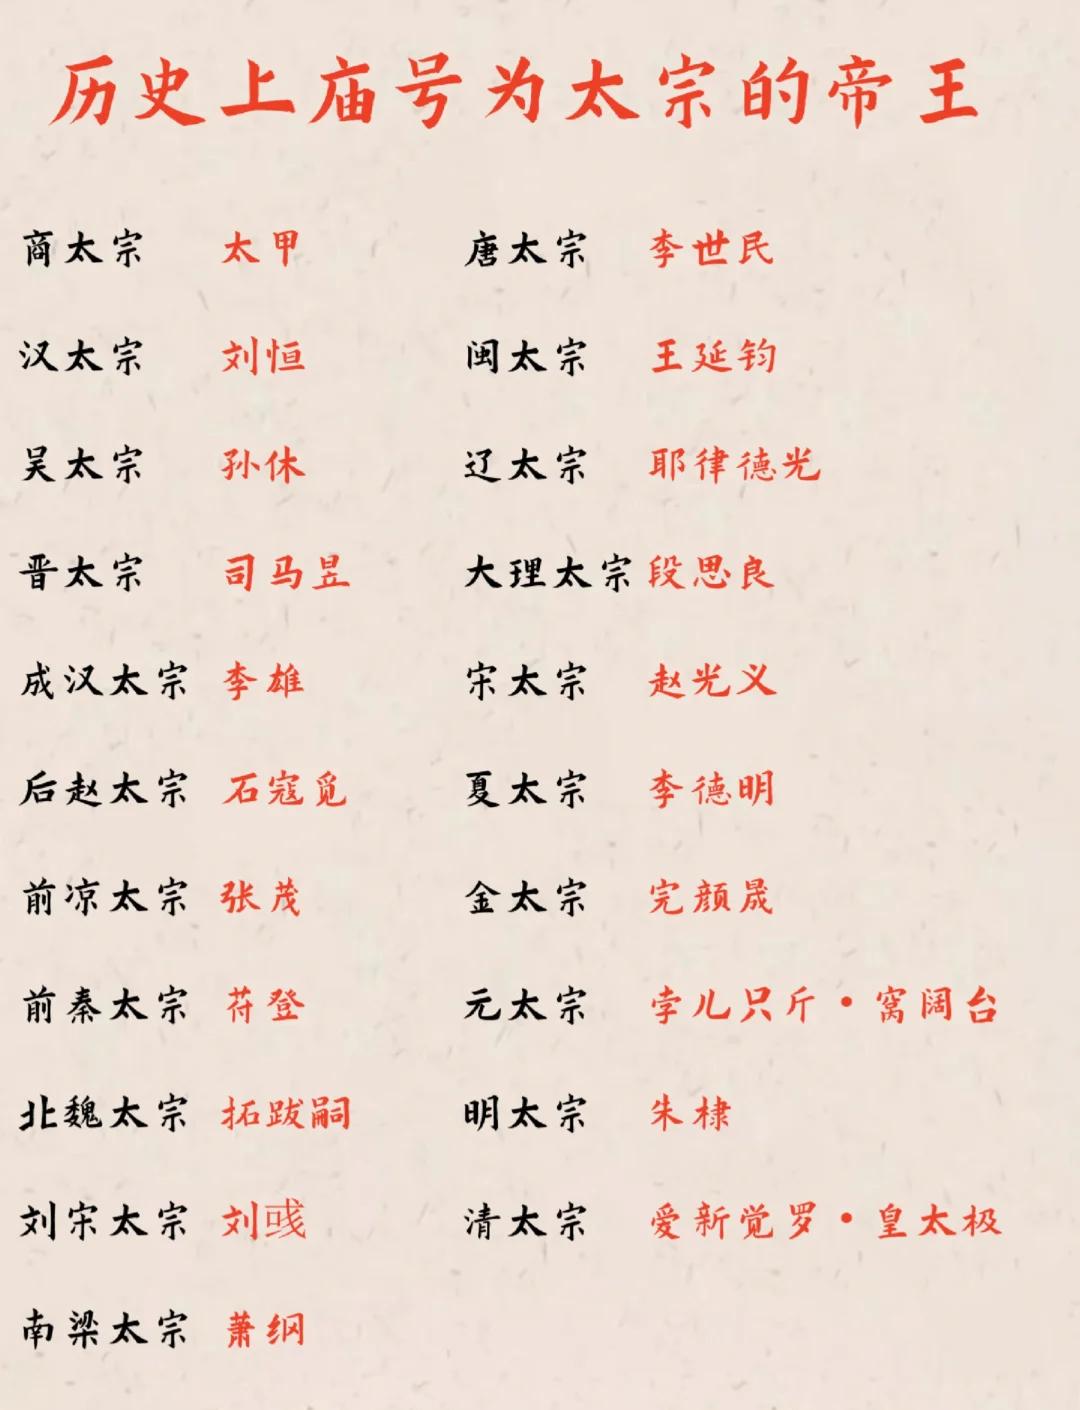 历史上庙号为太宗的帝王
商太宗 太甲 唐太宗 李世民
汉太宗 刘恒 闽太宗 王延钧
吴太宗 孙休 辽太宗 耶律德光
晋太宗 司马昱 大理太宗 段思良
成汉太宗 李雄 宋太宗 赵光义
后赵太宗 石寇觅 夏太宗 李德明
前凉太宗 张茂 金太宗 完颜晟
前秦太宗 苻登 元太宗 孛儿只斤·窝阔台
北魏太宗 拓跋嗣 明太宗 朱棣
刘宋太宗 刘彧 清太宗 爱新觉罗·皇太极
南梁太宗 萧纲